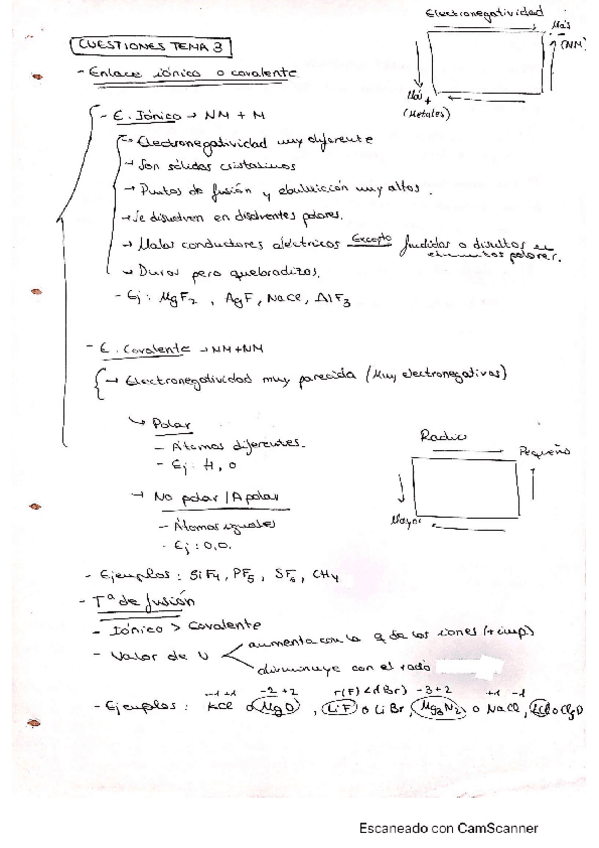 Electronegatividad
Más
(NM)
Más +
(Metales)
CUESTIONES TEMA 3
- Enlace iónico o covalente
- E. Iónico → NM + M
→ Electronegatividad muy diferente
→ Son sólidos cristalinos
→ Puntos de fusión y ebullición muy altos.
→ Se disuelven en disolventes polares.
→ Malos conductores eléctricos Excepto fundidos o disueltos en
polares.
→ Duros pero quebradizos.
- Ej: MgF₂, AgF, NaCl, AlF₃
- E. Covalente → NM+NM
→ Electronegatividad muy parecida (Muy electronegativos)
↳ Polar
- Átomos diferentes.
- Ej: H, O
→ No polar / Apolar
- Átomos iguales
- Ej: O, O.
Radio
Pequeño
Mayor
- Ejemplos: SiF₄, PF₅, SF₆, CH₄
- Tª de fusión
- Iónico > Covalente
- Valor de U
aumenta con la q de los iones (+ imp.)
disminuye con el radio
-1 +1 -2 +2 r(F) < r(Br) -3 +2 +1 -1
- Ejemplos: KCl o MgO, LiF o LiBr, Mg₃N₂ o NaCl,
Escaneado con CamScanner